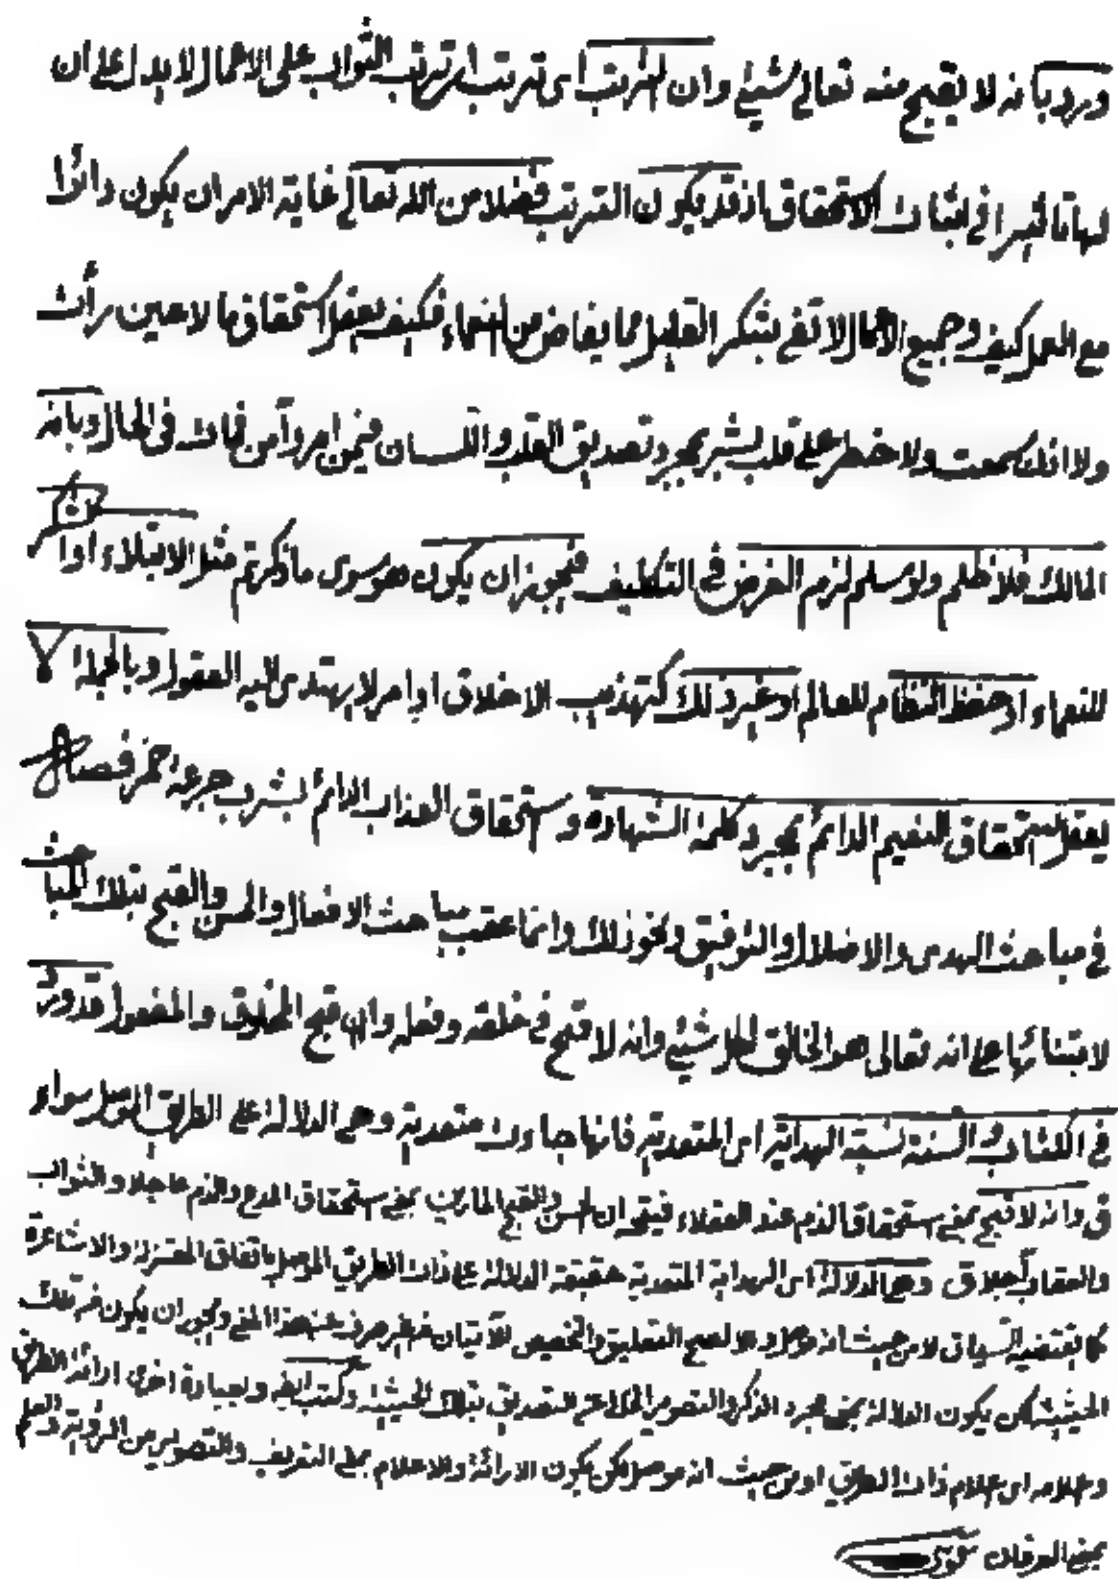 ورد بانه لا يقبح منه تعالى شيئ وان الترتب اى ترتب اى ترتب الثواب على الاعمال لا يدل على ان
لها تاثيرا فى اثبات الاستحقاق اذ قد يكون الترتب فضلا من الله تعالى غاية الامر ان يكون دائرا
مع العمل كيف وجميع الاعمال لا تفى بشكر القليل مما يفاض من النعماء فكيف يعقل استحقاق ما لا عين رأت
ولا اذن سمعت ولا خطر على قلب بشر بمجرد تصديق القلب واللسان فيمن امر وآمن فمات فى الحال وبانه
المالك فلا ظلم ولو سلم لزم الغرض فى التكليف فيجوز ان يكون هو سوى ما ذكرتم مثل الابتلاء او
للنعماء او حفظ النظام للعالم او غير ذلك كتهذيب الاخلاق او امر لا يهتدى اليه العقول وبالجملة لا
يعقل استحقاق النعيم الدائم بمجرد كلمة الشهادة واستحقاق العذاب الدائم بشرب جرعة خمر فصل
فى مباحث الهدى والاضلال والتوفيق ونحو ذلك وانما عقب مباحث الافعال والحسن والقبح بتلك المباحث
لابتنائها على انه تعالى هو الخالق لكل شيئ وانه لا قبح فى خلقه وفعله وان قبح المخلوق والمفعول قد ورد
فى الكتاب والسنة نسبة الهداية اى المتعدية فانها جاءت متعدية وهى الدلالة على الطريق الموصل سواء
ق وانه لا قبيح بمعنى استحقاق الذم عند العقلاء ان الحسن والقبح بمعنى استحقاق المدح والذم عاجلا والثواب
والعقاب وهى الدلالة اى الهداية المتعدية حقيقة الدلالة على ذات الطريق الموصل باتفاق المعتزلة والاشاعرة
كما يقتضيه السياق لا من حيث انه موصل والا لصح التعليق هذا المعنى ويجوز ان يكون تلك
الحيثية لكن يكون الدلالة بمعنى مجرد الذكر والتصوير التصديق بتلك الحيثية وبعبارة اخرى ارائة الطريق
واعلامه اى اعلام ذات الطريق او من حيث انه موصل لكن يكون الارائة والاعلام بمعنى التعريف والتصوير من الرؤية والعلم
بمعنى العرفان